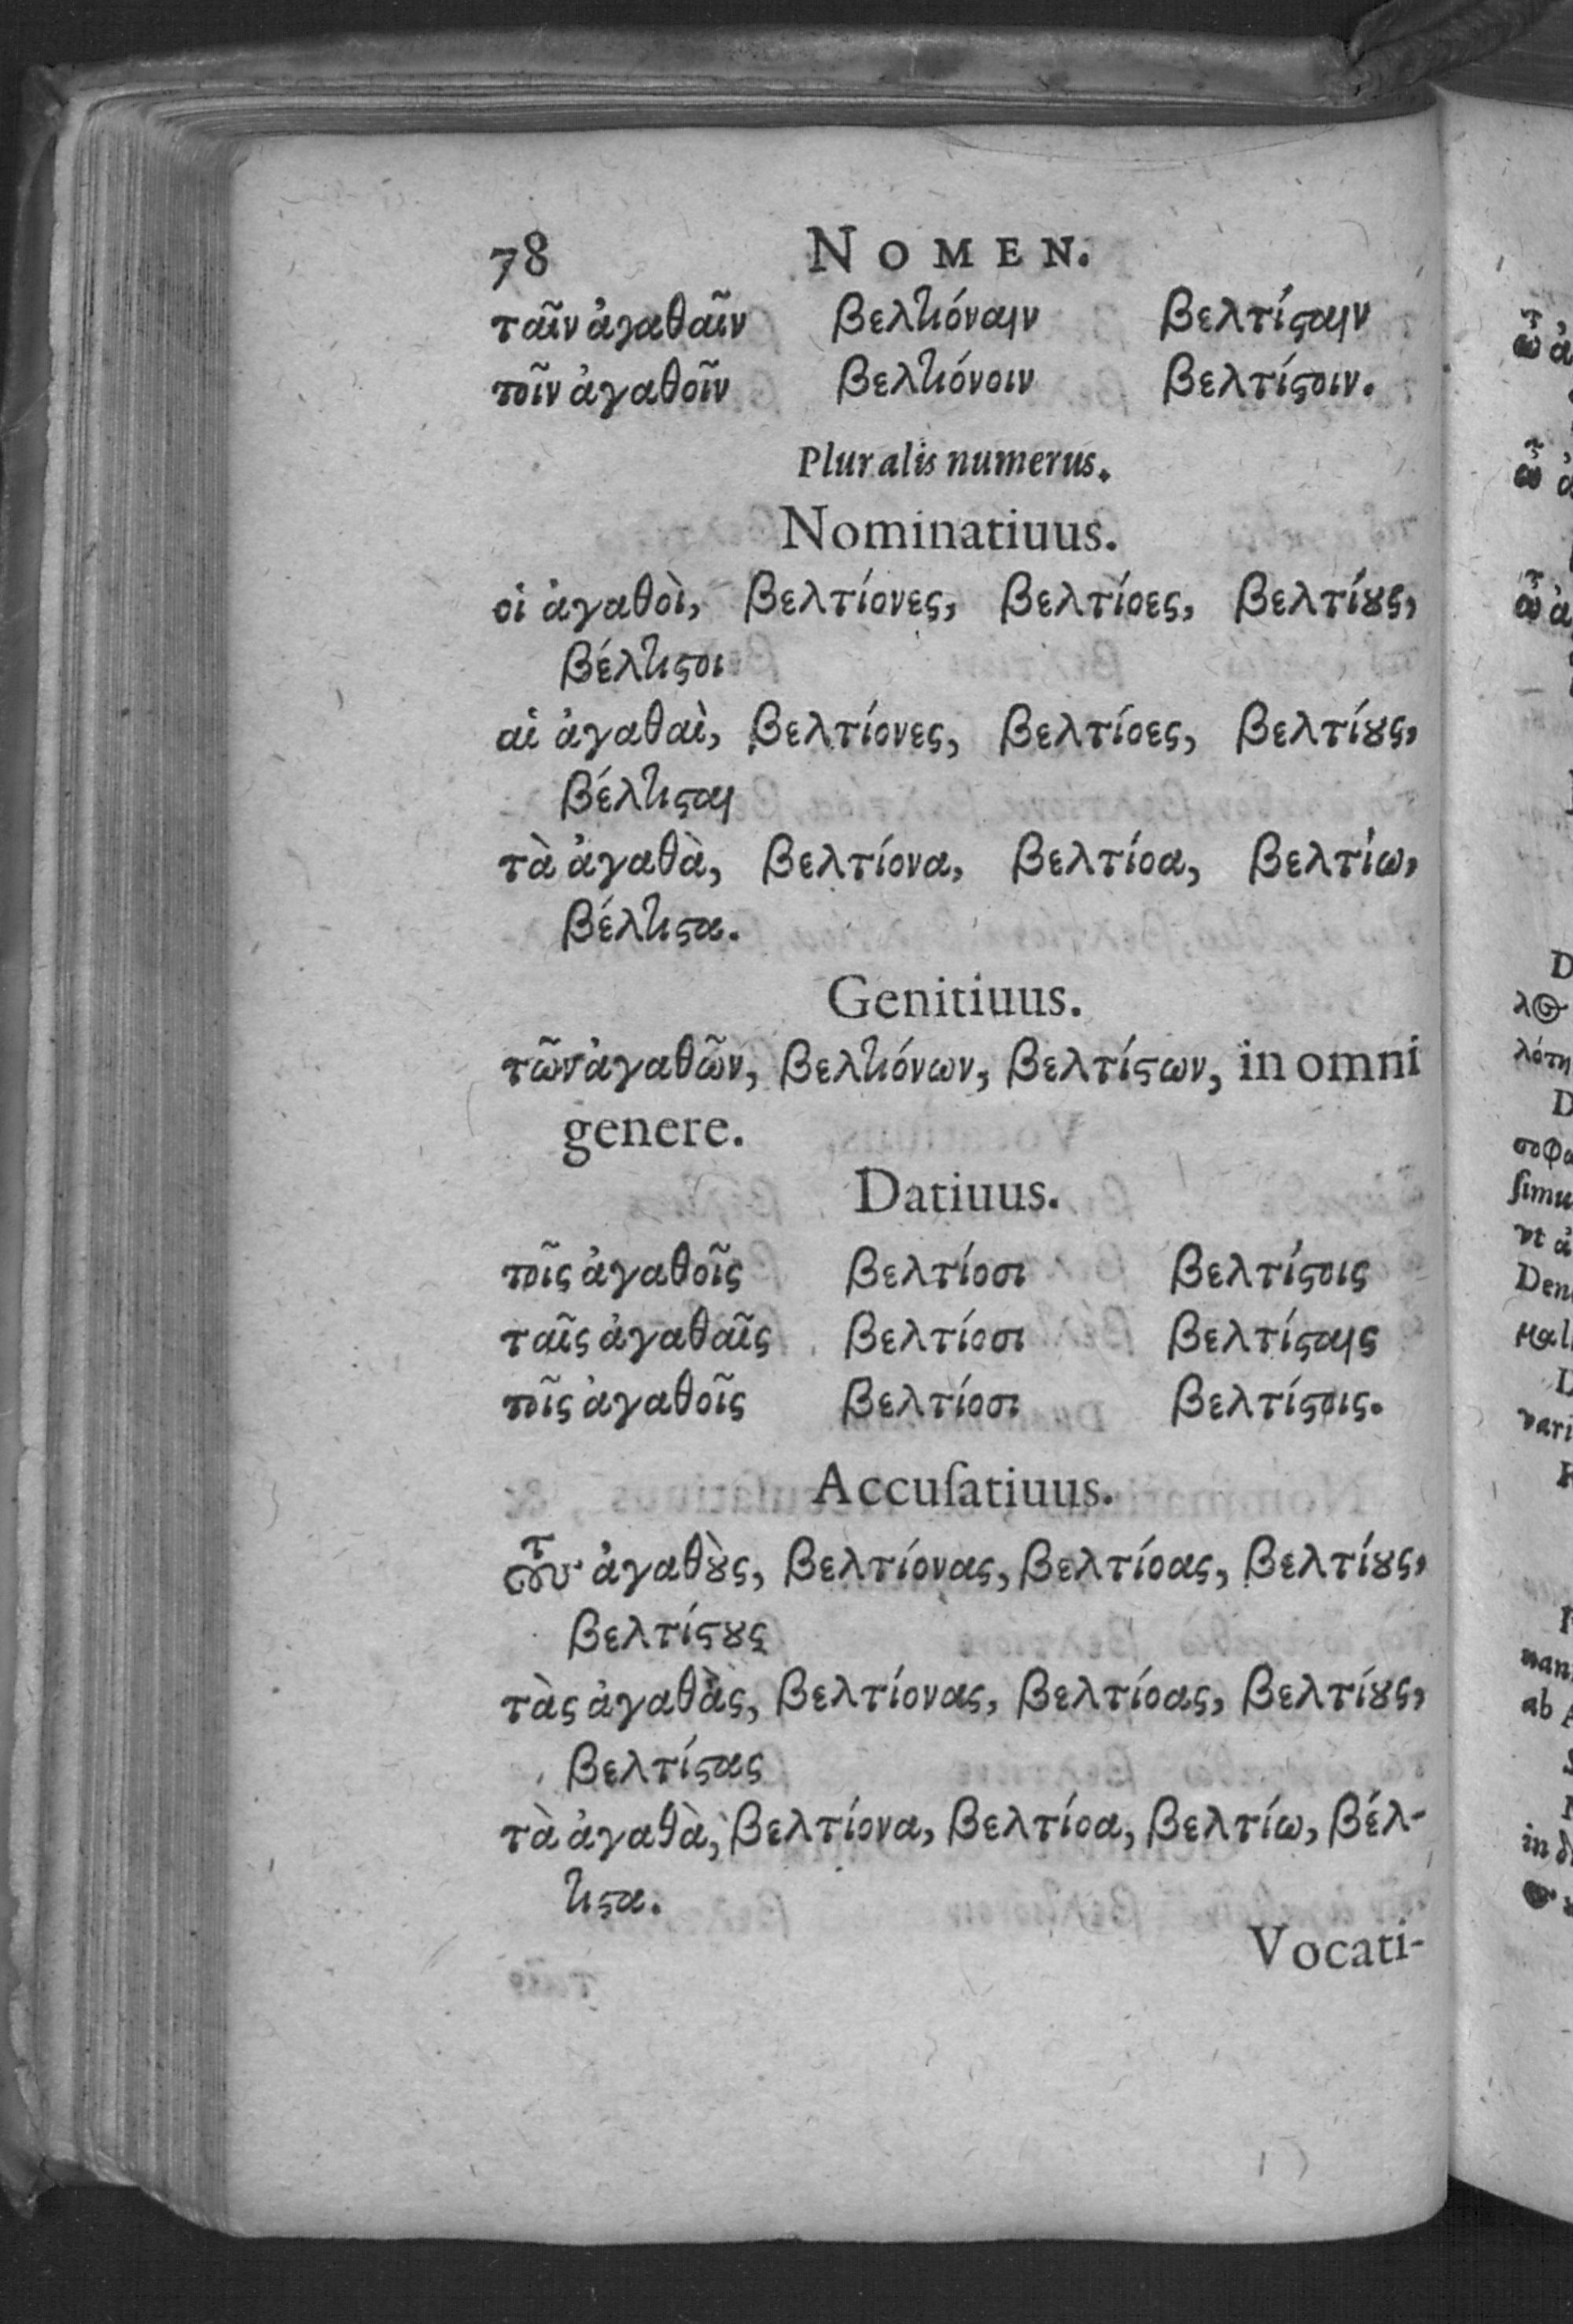 78 NOMEN.
ταῖν ἀγαθαῖν βελτιόναιν βελτίϛαιν
τοῖν ἀγαθοῖν βελτιόνοιν βελτίϛοιν.
Pluralis numerus.
Nominatiuus.
οἱ ἀγαθοὶ, βελτίονες, βελτίοες, βελτίȣς,
βέλτιϛοι
αἱ ἀγαθαὶ, βελτίονες, βελτίοες, βελτίȣς,
βέλτιϛαι
τὰ ἀγαθὰ, βελτίονα, βελτίοα, βελτίω,
βέλτιϛα.
Genitiuus.
τῶν ἀγαθῶν, βελτιόνων, βελτίϛων, in omni
genere.
Datiuus.
τοῖς ἀγαθοῖς βελτίοσι βελτίϛοις
ταῖς ἀγαθαῖς βελτίοσι βελτίϛαις
τοῖς ἀγαθοῖς βελτίοσι βελτίϛοις.
Accuſatiuus.
τοὺς ἀγαθȣ̀ς, βελτίονας, βελτίοας, βελτίȣς,
βελτίϛȣς
τὰς ἀγαθὰς, βελτίονας, βελτίοας, βελτίȣς,
βελτίϛας
τὰ ἀγαθὰ, βελτίονα, βελτίοα, βελτίω, βέλ-
τιϛα.
Vocati-